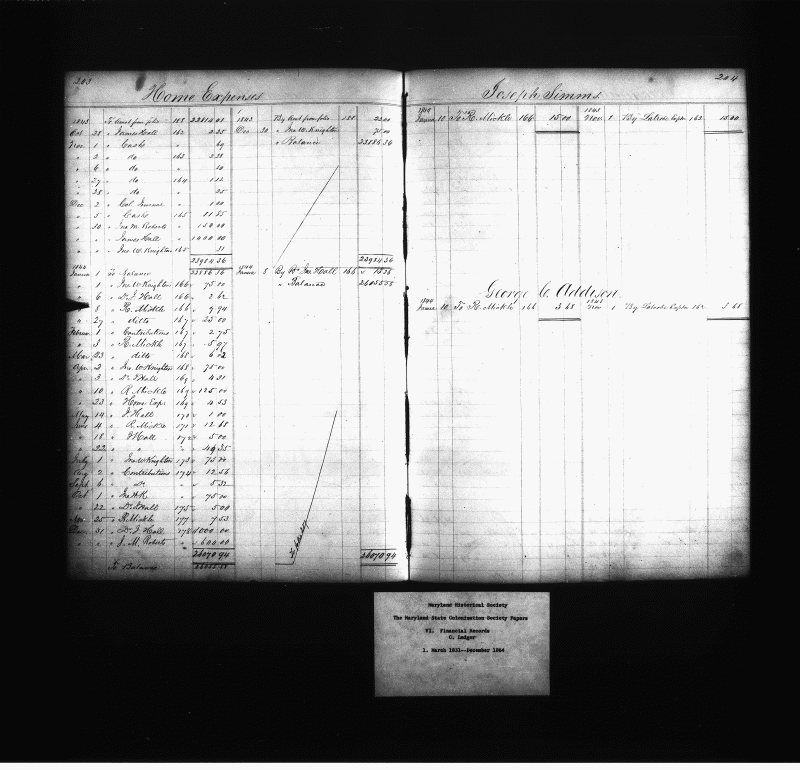 203
Home Expenses
1843 To Amt from folio 188 22814 03
Oct 28 " James Hall 162 2 25
Nov 1 " Cash 69
" 2 " do 163
" 6 " do
" 27 " do 164
" 28 " do 25
Dec 2 " Col 1 00
" 5 " Cash 165 11 55
" 30 " Jno M. Roberts 150 00
" " " James Hall 1400 00
" " " Jno W. Knighton 165 31
1844
Janua 1 To Balance
" 1 " Jno W Knighton 166 75 00
" 6 " Dr J. Hall 166 2 62
" 8 " R. Mickle 166 9 94
" 27 " ditto 167 25 00
Februa 1 " Contributions 167 2 75
" 3 " R. Mickle 167 5 97
Mar 23 " ditto 168 6 02
Apr 2 " Jno W Knighton 168 75 00
" 3 " Dr J Hall 169 4 31
" 10 " R Mickle 169 125 00
" 23 " Home Exp 169 4 53
May 14 " J. Hall 170 1 00
June 4 " R. Mickle 171 12 68
" 18 " J Hall 172 5 00
" 22 " "
July 1 " Jno W Knighton 173 75 00
Aug 2 " Contributions 174 12 56
Sept 6 " Do " 5 32
Oct 1 " Jno W K " 75 00
" 22 " Dr J Hall 175 5 00
Nov 25 " R Mickle 177 7 53
Dec 31 " Dr. J Hall 178 1000 00
" " " J. M. Roberts " 600 00
26070 94
To Balance
1843 By Amt from folio 188
Dec 30 " Jno W. Knighton 75 00
" Balance
1844
Janua 8 By Dr Jas Hall 166
" Balance
26070 94
204
Joseph Simms
1844
Janua 10 To R. Mickle 166 15 00
1843
Nov 1 By Latrobe Exp 162 15 00
George C. Addison
1844
Janua 10 To R Mickle 166 3 68
1843
Nov 1 By Latrobe Exp 162 3 68
Maryland Historical Society
The Maryland State Colonization Society Papers
VI. Financial Records
C. Ledger
1. March 1831--December 1864